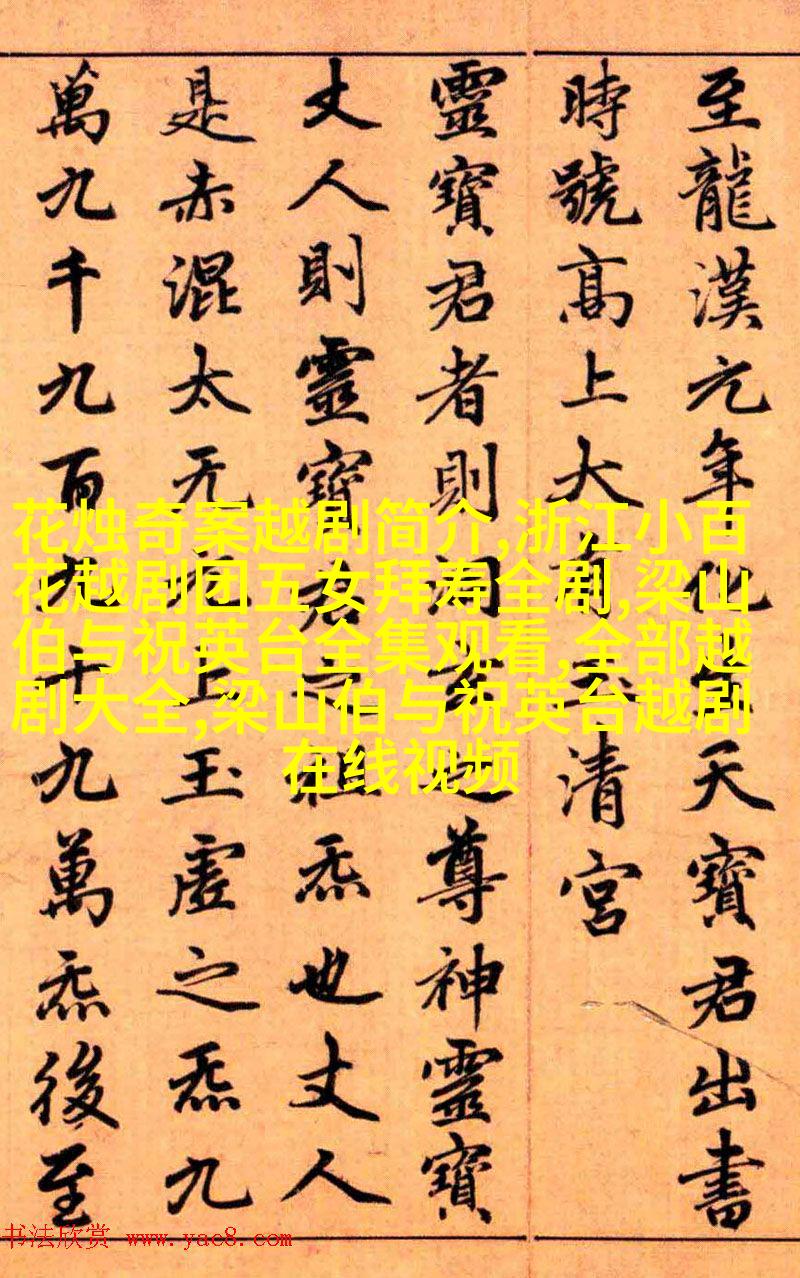 至龍漢元年化生天寶君出書
時號高上大有玉清宮
靈寶君者則洞玄之尊神靈寶
丈人則靈寶君之祖炁也丈人
是赤混太无元上玉虛之炁九
萬九千九百九十九萬炁後至
花烛奇案越剧简介,浙江小百
花越剧团五女拜寿全剧,梁山
伯与祝英台全集观看,全部越
剧大全,梁山伯与祝英台越剧
在线视频
书法欣赏 www.yac8.com